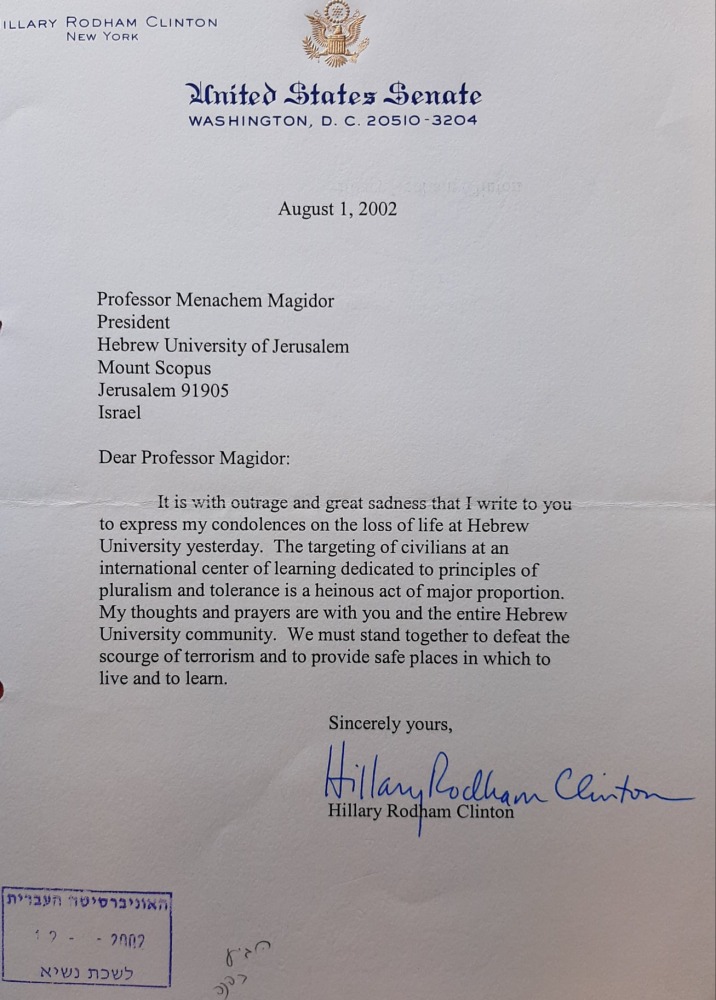 ILLARY RODHAM CLINTON
NEW YORK
United States Senate
WASHINGTON, D. C. 20510-3204
August 1, 2002
Professor Menachem Magidor
President
Hebrew University of Jerusalem
Mount Scopus
Jerusalem 91905
Israel
Dear Professor Magidor:
It is with outrage and great sadness that I write to you
to express my condolences on the loss of life at Hebrew
University yesterday.  The targeting of civilians at an
international center of learning dedicated to principles of
pluralism and tolerance is a heinous act of major proportion.
My thoughts and prayers are with you and the entire Hebrew
University community.  We must stand together to defeat the
scourge of terrorism and to provide safe places in which to
live and to learn.
Sincerely yours,
Hillary Rodham Clinton
Hillary Rodham Clinton
האוניברסיטה העברית
2002
לשכת נשיא